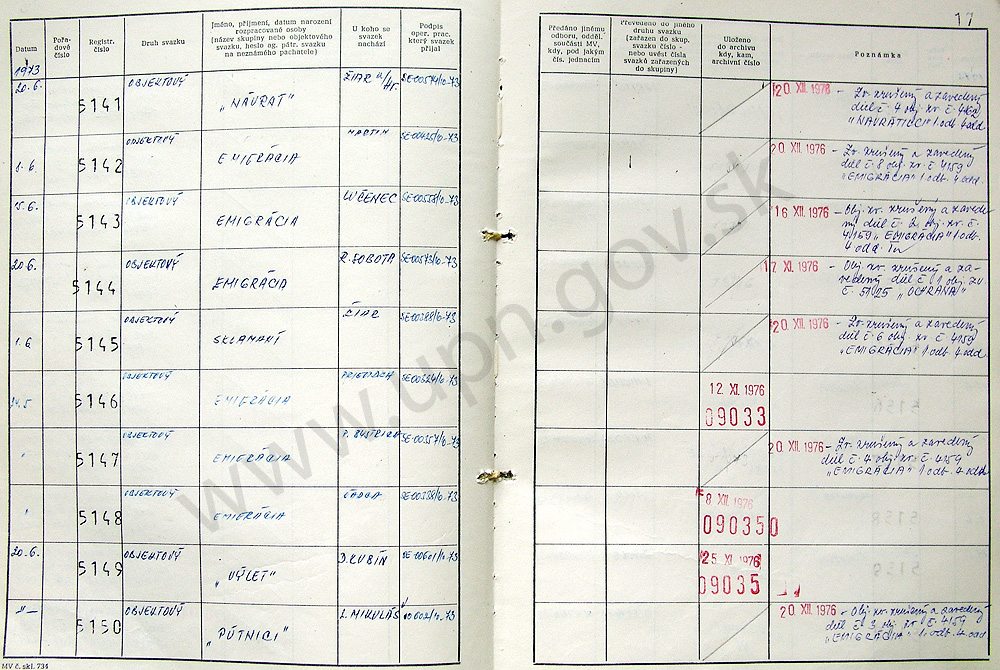 17
Datum
Pořadové číslo
Registr. číslo
Druh svazku
Jméno, příjmení, datum narození
rozpracované osoby
(název skupiny nebo objektového
svazku, heslo ag. pátr. svazku
na neznámého pachatele)
U koho se
svazek
nachází
Podpis
oper. prac.
který svazek
přijal
Předáno jinému
odboru, odděl.
součásti MV,
kdy, pod jakým
čís. jednacím
Převedeno do jiného
druhu svazku
(zařazen do skup.
svazku číslo -
nebo uvést čísla
svazků zařazených
do skupiny)
Uloženo
do archivu
kdy, kam,
archivní číslo
Poznámka
1973
20.6. 5141 OBJEKTOVÝ „NÁVRAT" ŽIAR n/Hr.
20 XII. 1976 - Zv. zrušený a zavedený
diel č. 4 obj. zv. č.
„NAVRÁTILCI" 1.odb. 4.odd
5142 OBJEKTOVÝ EMIGRÁCIA MARTIN SE00425/10-73
20 XII. 1976 - Zv. zrušený a zavedený
diel č. 8 obj. zv. č. 4159
„EMIGRÁCIA" 1.odb. 4.odd.
15.6. 5143 OBJEKTOVÝ EMIGRÁCIA LUČENEC SE00558/10-73
16 XII. 1976 - Obj. zv. zrušený a zavede-
ný diel č. 2 obj. zv. č.
4159 „EMIGRÁCIA" 1.odb.
4.odd.
20.6. 5144 OBJEKTOVÝ EMIGRÁCIA R. SOBOTA SE00573/10-73
17. XI. 1976 - Obj. zv. zrušený a za-
vedený diel č. 1 obj. zv.
č. 5125 „OCHRANA"
1.6. 5145 OBJEKTOVÝ SKLAMANÝ ŽIAR SE00388/10-73
20 XII. 1976 - Zv. zrušený a zavedený
diel č. 6 obj. zv. č. 4159
„EMIGRÁCIA" 1.odb. 4.odd
5146 OBJEKTOVÝ EMIGRÁCIA PRIEVIDZA SE00524/10-73
12 XI. 1976
09033
" 5147 OBJEKTOVÝ EMIGRÁCIA P. BYSTRICA SE00557/10-73
20 XII. 1976 - Zv. zrušený a zavedený
diel č. 4 obj. zv. č. 4159
„EMIGRÁCIA" 1.odb. 4.odd
" 5148 OBJEKTOVÝ EMIGRÁCIA ČADCA SE00538/10-73
8 XII. 1976
090350
20.6. 5149 OBJEKTOVÝ „VÝLET" D. KUBÍN SE00601/10-73
25 XI. 1976
09035
-"- 5150 OBJEKTOVÝ „PÚTNICI" L. MIKULÁŠ
20 XII. 1976 - Obj. zv. zrušený a zavedený
diel č. 3 obj. zv. č. 4159
„EMIGRÁCIA" 1.odb. 4.odd
MV č. skl. 734
www.upn.gov.sk